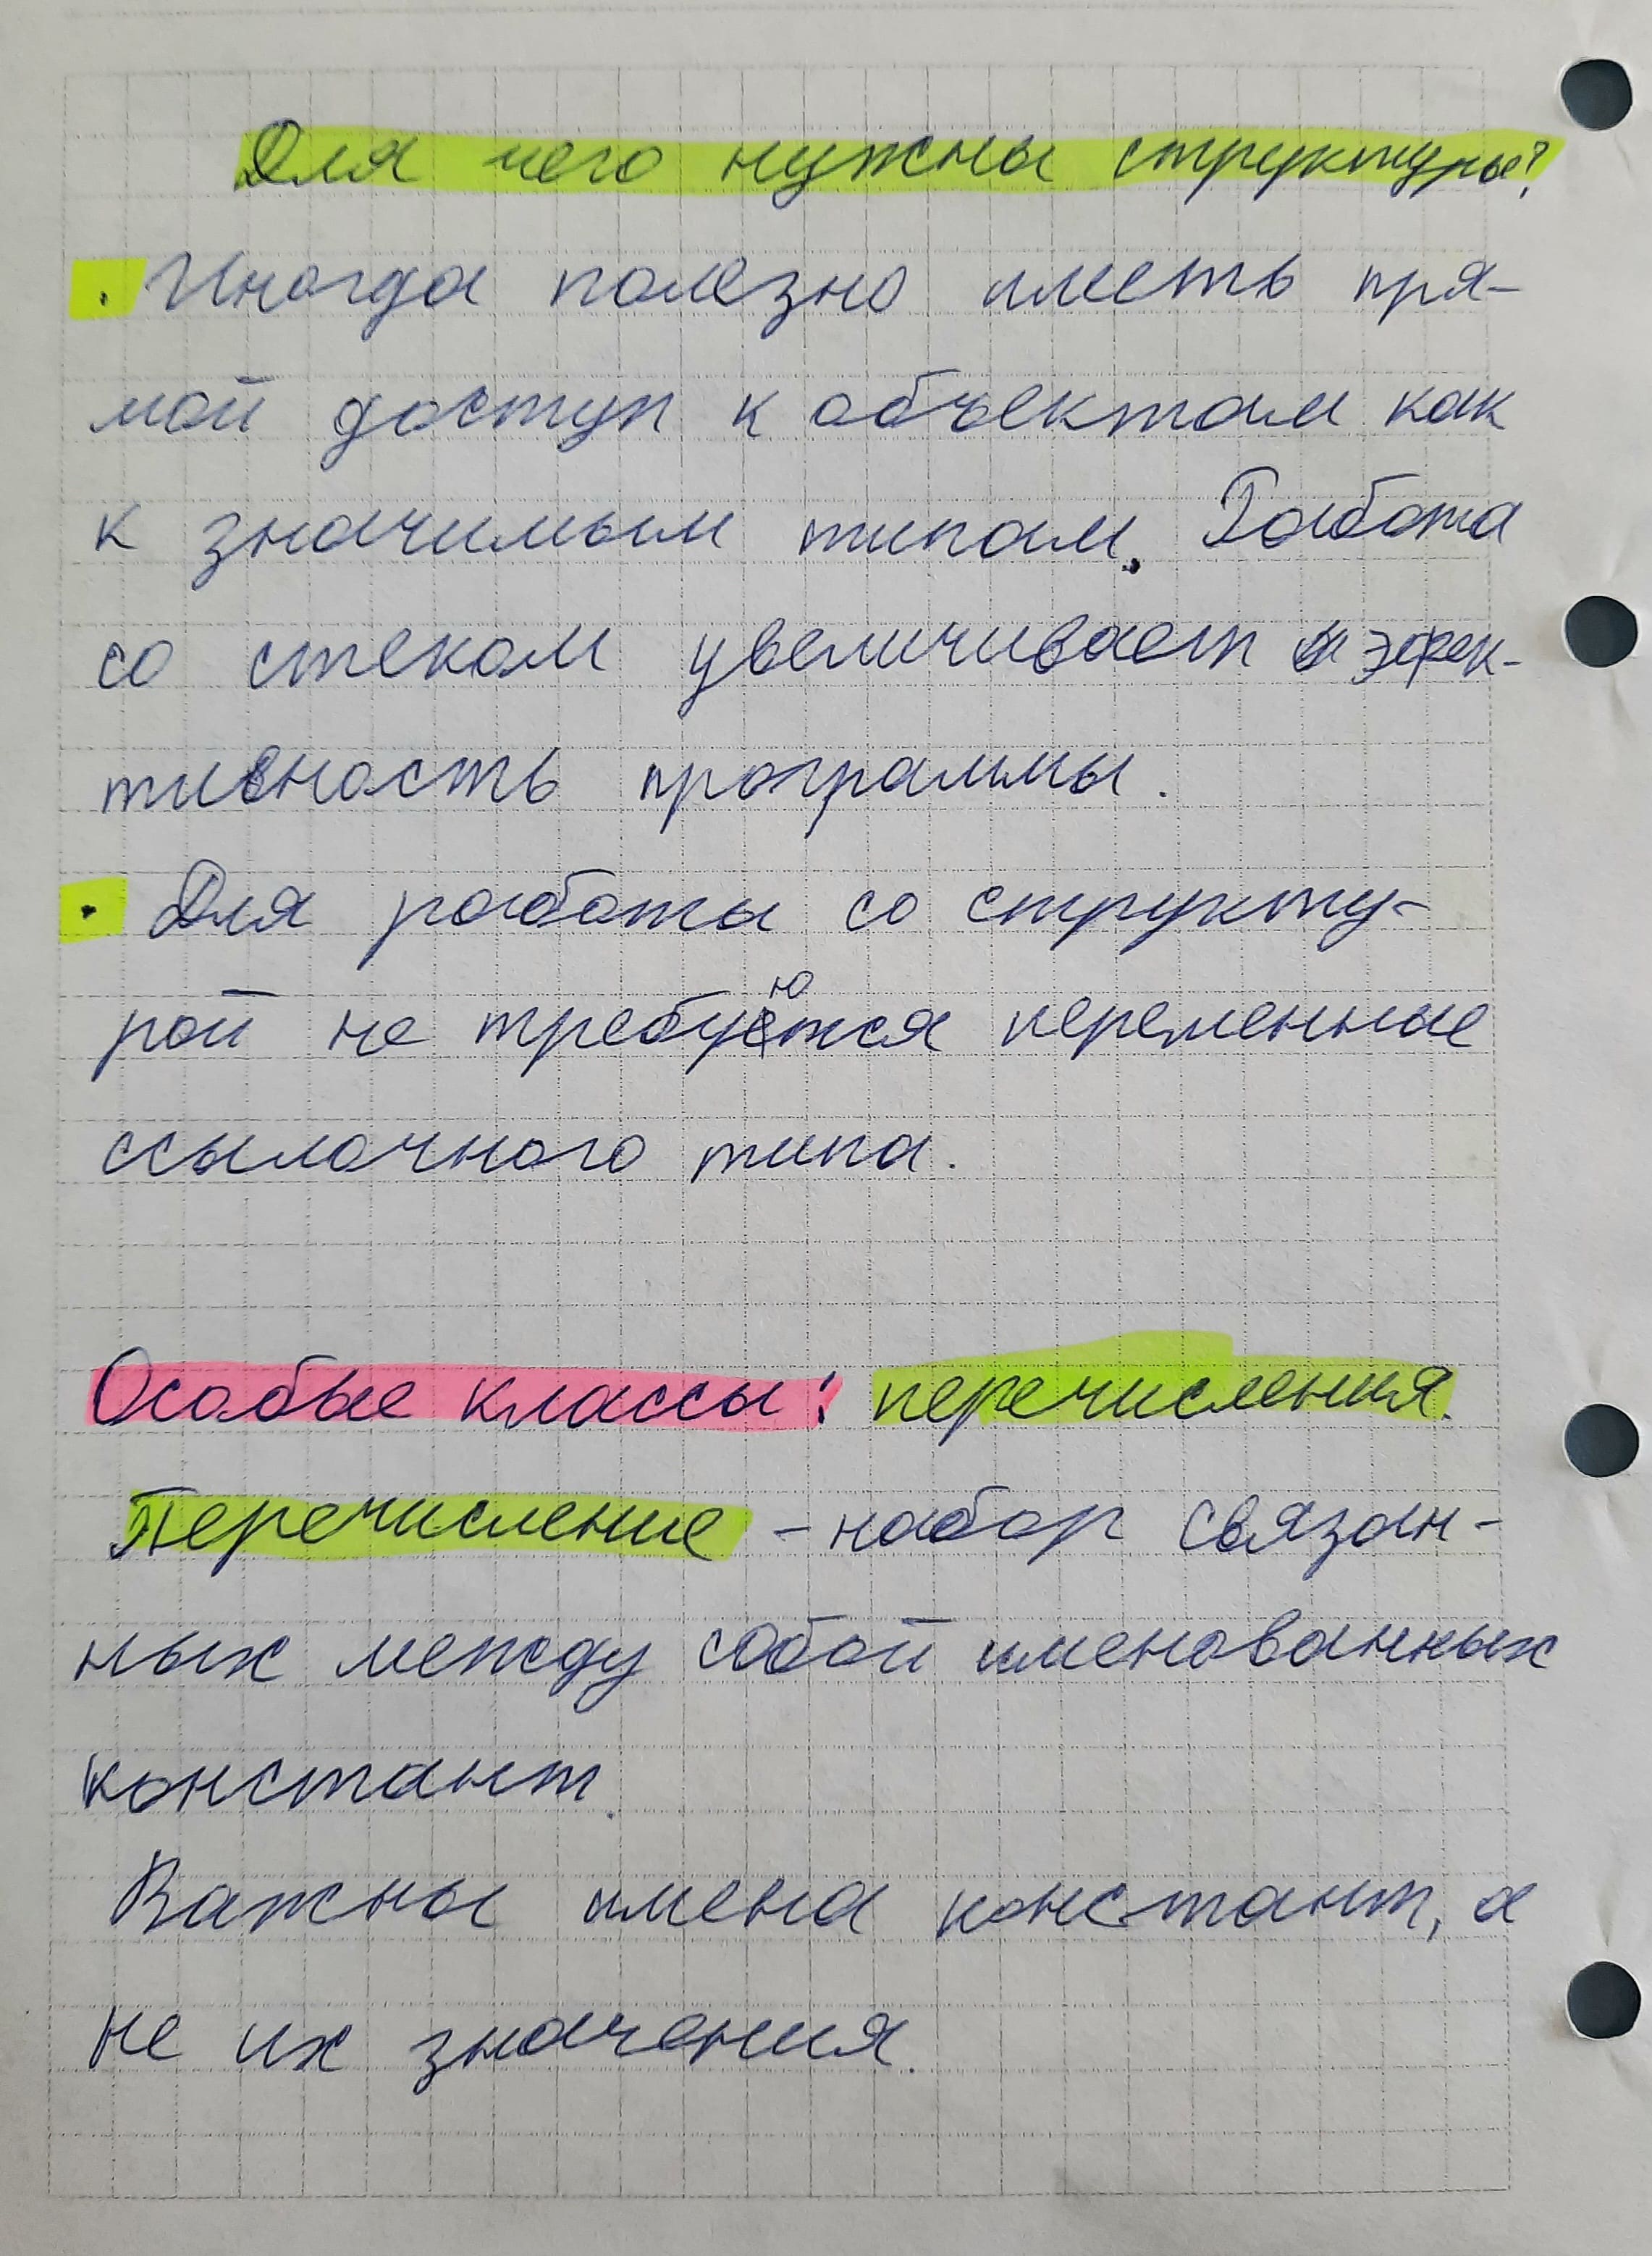 Для чего нужны структуры?
· Иногда полезно иметь пря-
мой доступ к объектам как
к значимым типам. Работа
со стеком увеличивает эффек-
тивность программы.
· Для работы со структу-
рой не требуются переменные
ссылочного типа.
Особые классы: перечисления.
Перечисление - набор связан-
ных между собой именованных
констант.
Важны имена констант, а
не их значения.